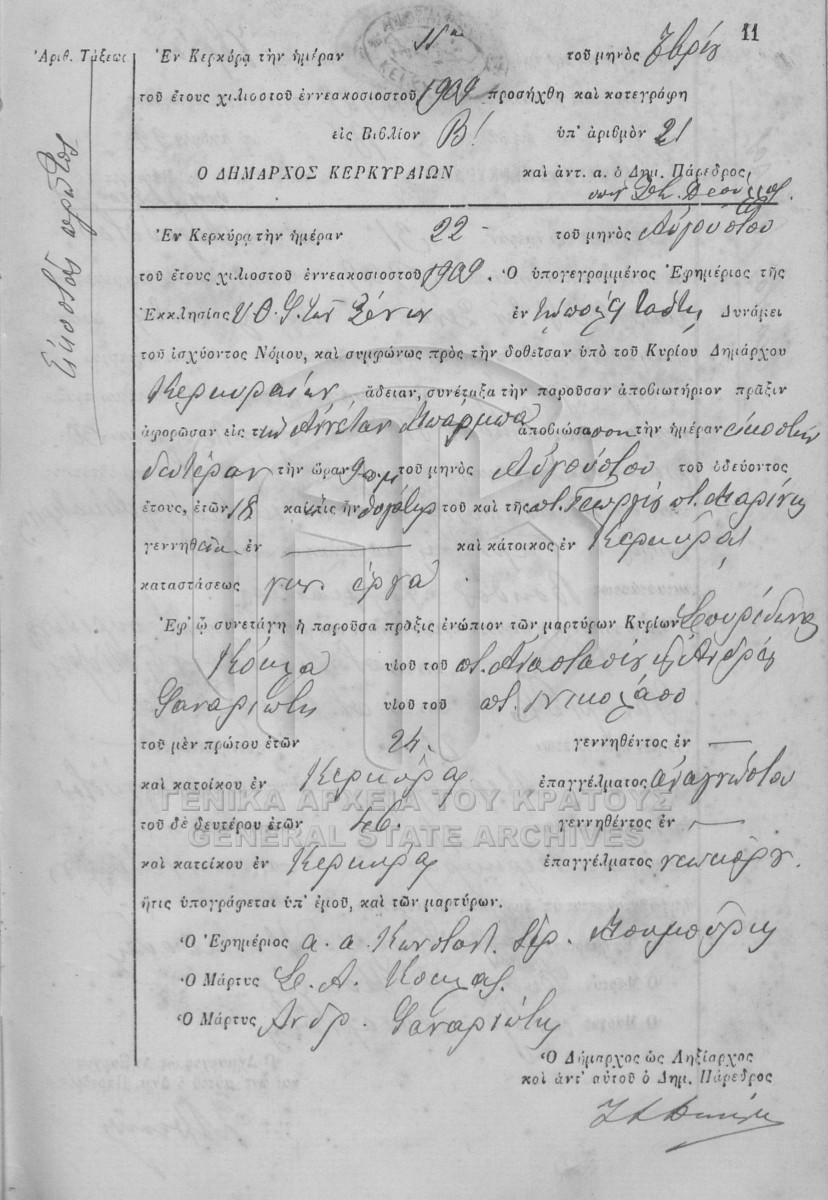 11
Ἀριθ. Τάξεως
Ἐν Κερκύρᾳ τὴν ἡμέραν 11ῃ τοῦ μηνὸς 7βρίου
τοῦ ἔτους χιλιοστοῦ ἐννεακοσιοστοῦ 1909 προσήχθη καὶ κατεγράφη
εἰς Βιβλίον Β! ὑπ' ἀριθμὸν 21
Ο ΔΗΜΑΡΧΟΣ ΚΕΡΚΥΡΑΙΩΝ καὶ ἀντ. α. ὁ Δημ. Πάρεδρος
Εἰκοστὸς πρῶτος
Ἐν Κερκύρᾳ τὴν ἡμέραν 22 τοῦ μηνὸς Αὐγούστου
τοῦ ἔτους χιλιοστοῦ ἐννεακοσιοστοῦ 1909. Ὁ ὑπογεγραμμένος Ἐφημέριος τῆς
Ἐκκλησίας Υ. Θ. τῶν Ξένων ἐν τῇ πόλει ταύτῃ Δυνάμει
τοῦ ἰσχύοντος Νόμου, καὶ συμφώνως πρὸς τὴν δοθεῖσαν ὑπὸ τοῦ Κυρίου Δημάρχου
Κερκυραίων ἄδειαν, συνέταξα τὴν παροῦσαν ἀποβιωτήριον πρᾶξιν
ἀφορῶσαν εἰς τὴν Ἀννέταν Μπάρμπα ἀποβιώσασαν τὴν ἡμέραν εἰκοστὴν
δευτέραν τὴν ὥραν 9 π.μ. τοῦ μηνὸς Αὐγούστου τοῦ ὁδεύοντος
ἔτους, ἐτῶν 18 καὶ ἥτις ἦν θυγάτηρ τοῦ καὶ τῆς ποτ. Γεωργίου ποτ. Μαρίνης
γεννηθεῖσα ἐν — καὶ κάτοικος ἐν Κερκύρᾳ
καταστάσεως γυν. ἔργα
Ἐφ' ᾧ συνετάγη ἡ παροῦσα πρᾶξις ἐνώπιον τῶν μαρτύρων Κυρίων Σπυρίδωνος
Κόκλα υἱοῦ τοῦ ποτ. Ἀναστασίου καὶ Ἀνδρέα
Φαναριώτη υἱοῦ τοῦ ποτ. Νικολάου
τοῦ μὲν πρώτου ἐτῶν 24. γεννηθέντος ἐν —
καὶ κατοίκου ἐν Κερκύρᾳ ἐπαγγέλματος ἀναγνώστου
ΓΕΝΙΚΑ ΑΡΧΕΙΑ ΤΟΥ ΚΡΑΤΟΥΣ
τοῦ δὲ δευτέρου ἐτῶν 46. γεννηθέντος ἐν —
GENERAL STATE ARCHIVES
καὶ κατοίκου ἐν Κερκύρᾳ ἐπαγγέλματος νεωκόρου.
ἥτις ὑπογράφεται ὑπ' ἐμοῦ, καὶ τῶν μαρτύρων.
Ὁ Ἐφημέριος α. α. Κωνσταντ. Ἱερ.
Ὁ Μάρτυς Σ. Α. Κόκλας
Ὁ Μάρτυς Ἀνδρ. Φαναριώτης
Ὁ Δήμαρχος ὡς Ληξίαρχος
καὶ ἀντ' αὐτοῦ ὁ Δημ. Πάρεδρος